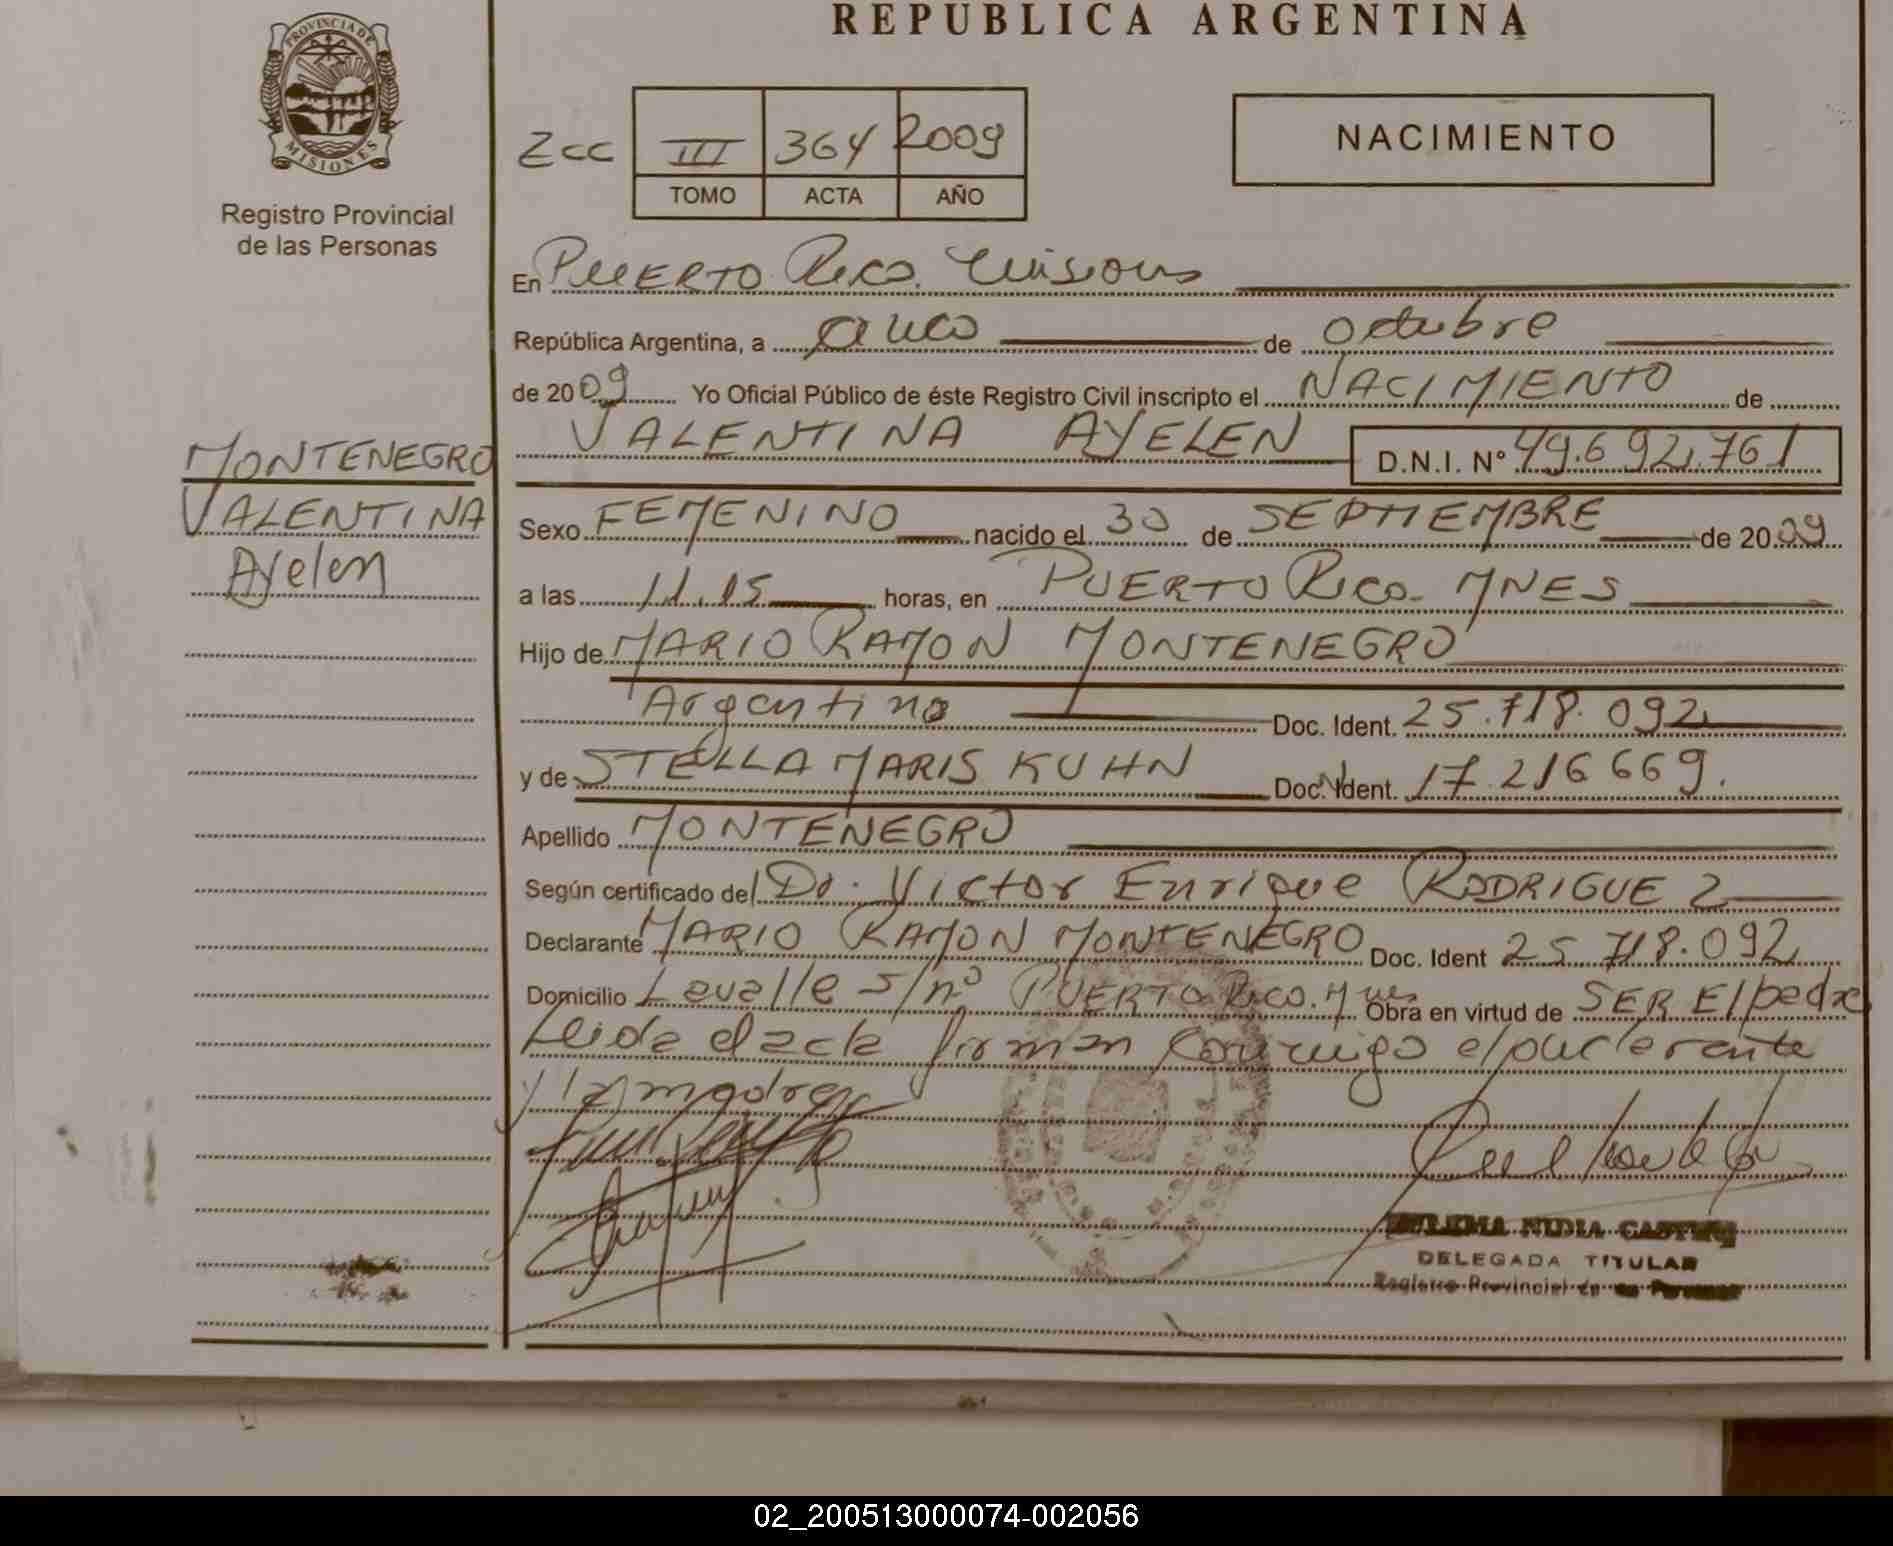 REPUBLICA ARGENTINA
PROVINCIA DE
MISIONES
Registro Provincial
de las Personas
Zcc III 364 2009
TOMO ACTA AÑO
NACIMIENTO
En PUERTO RICO. Misiones
República Argentina, a cinco de octubre
de 2009 Yo Oficial Público de éste Registro Civil inscripto el NACIMIENTO de
VALENTINA AYELEN D.N.I. N° 49.692.761
MONTENEGRO
VALENTINA
Ayelen
Sexo FEMENINO nacido el 30 de SEPTIEMBRE de 2009
a las 11.15 horas, en PUERTO RICO. MNES
Hijo de MARIO RAMON MONTENEGRO
Argentino Doc. Ident. 25.718.092
y de STELLA MARIS KUHN Doc. Ident. 17.216669.
Apellido MONTENEGRO
Según certificado del Dr. Victor Enrique RODRIGUEZ
Declarante MARIO RAMON MONTENEGRO Doc. Ident 25.718.092
Domicilio Lavalle s/nº PUERTO RICO. Mnes Obra en virtud de SER El padre
Leida el acta firman conmigo el declarante
y la madre
NIDIA
DELEGADA TITULAR
Registro Provincial de las Personas
02_200513000074-002056